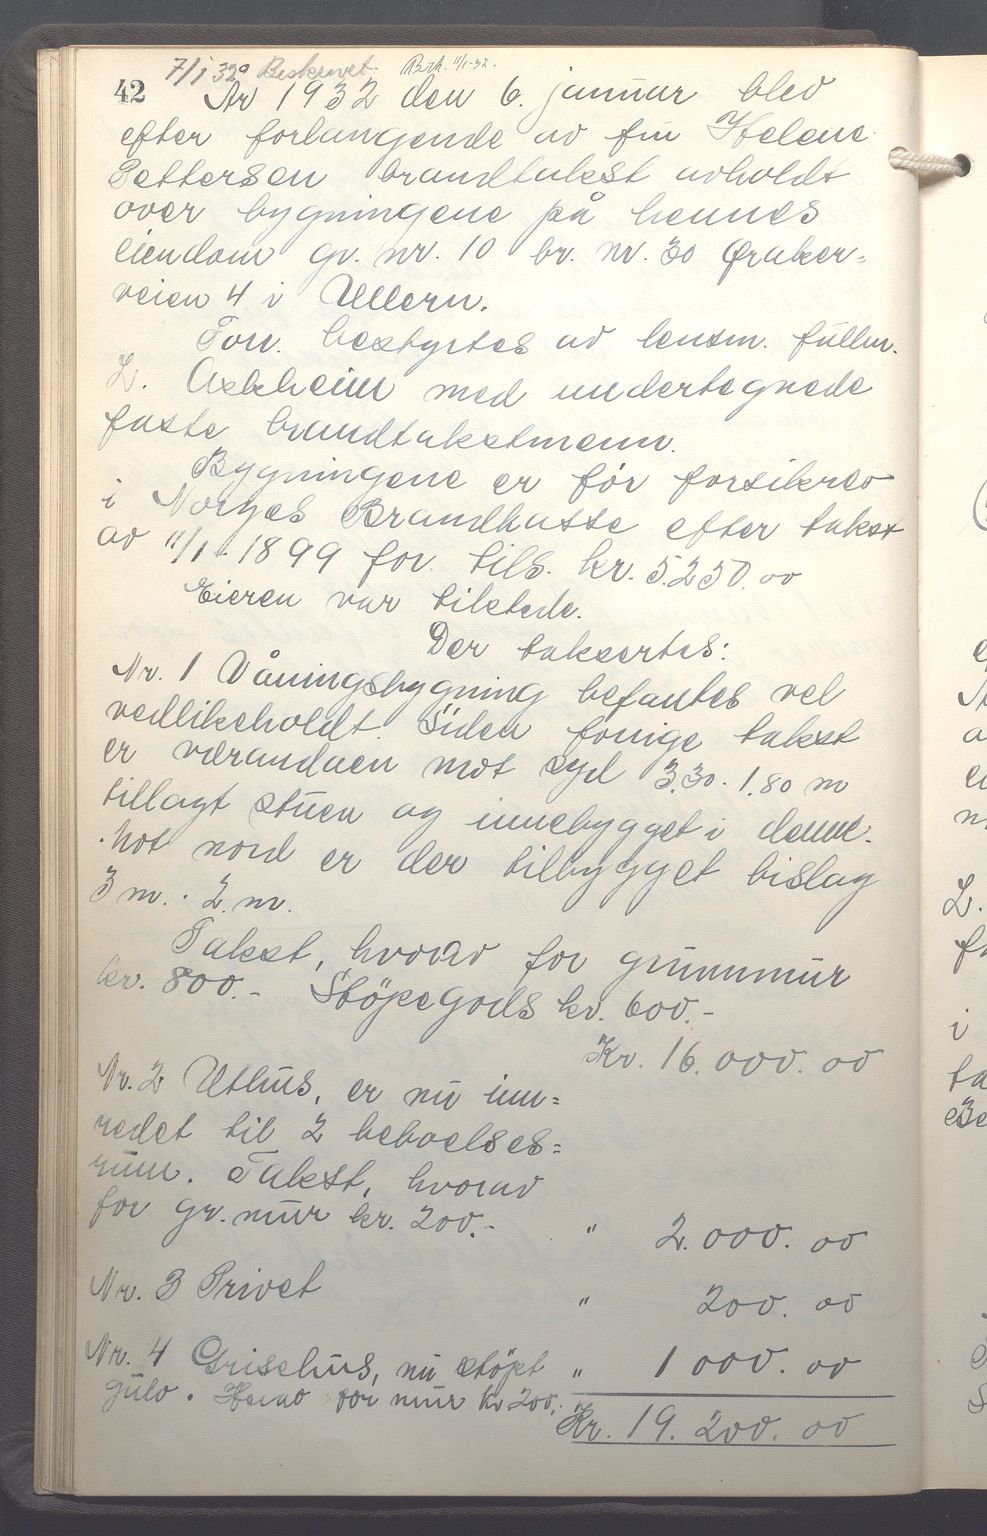 7/1 32 Beskrevet. B.tk. 11/1-32.
42 År 1932 den 6. januar blev
efter forlangende av fru Helene
Pettersen brandtakst avholdt
over bygningene på hennes
eiendom gr. nr. 10 br. nr. 30 Øraker=
veien 4 i Ullern.
Forr. bestyrtes av lensm. fullm.
L. Askheim med undertegnede
faste brandtakstmenn.
Bygningene er før forsikret
i Norges Brandkasse efter takst
av 11/1-1899 for tils. kr. 5.250.00
Eieren var tilstede.
Der taksertes:
Nr. 1 Våningsbygning befantes vel
vedlikeholdt. Siden forrige takst
er verandaen mot syd 3,30 · 1,80 m
tillagt stuen og innebygget i denne.
Mot nord er der tilbygget bislag
3 m. · 2 m.
Takst, hvorav for grunnmur
kr. 800.- Støpegods kr. 600.-
Kr. 16.000.00
Nr. 2 Uthus, er nu inn=
redet til 2 beboelses=
rum. Takst, hvorav
for gr. mur kr. 200.- " 2.000.00
Nr. 3 Privet " 200.00
Nr. 4 Grisehus, nu støpt " 1000.00
gulv. Herav for mur kr 200.-
Kr. 19.200.00